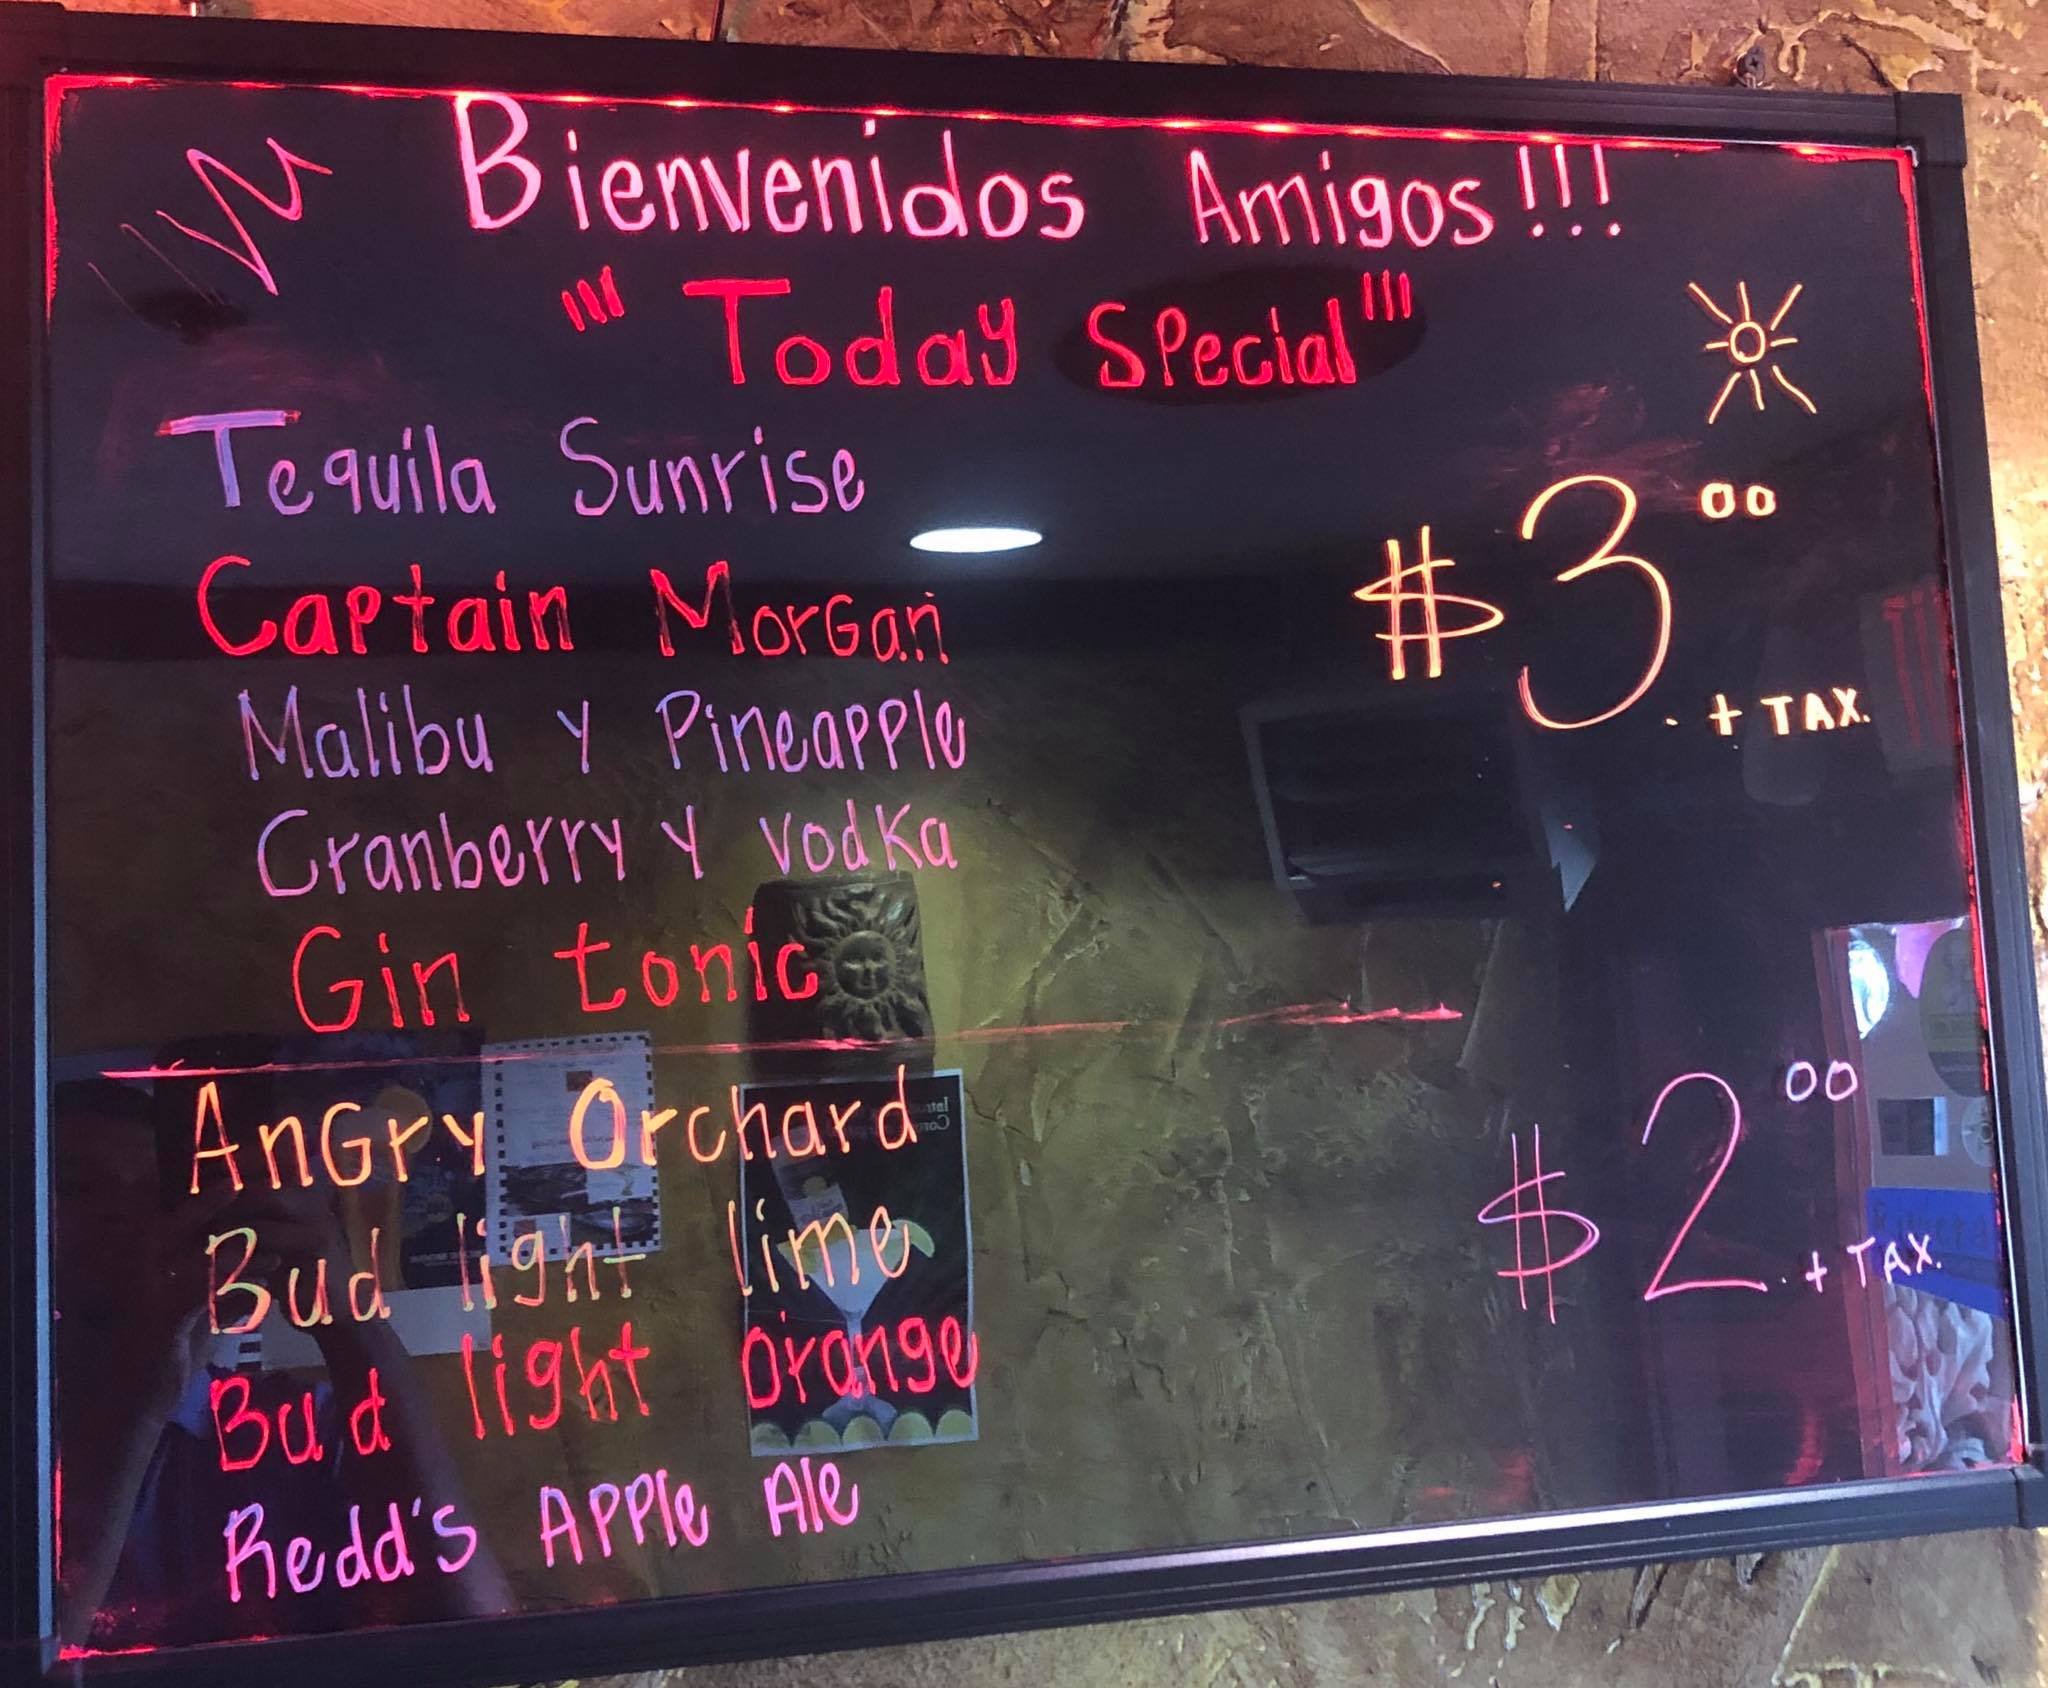 Bienvenidos Amigos!!!
"' Today Special "'
Tequila Sunrise
Captain Morgan
$3.00 + TAX.
Malibu y Pineapple
Cranberry y Vodka
Gin tonic
Angry Orchard
Bud light lime
$2.00 + TAX.
Bud light Orange
Redd's Apple Ale